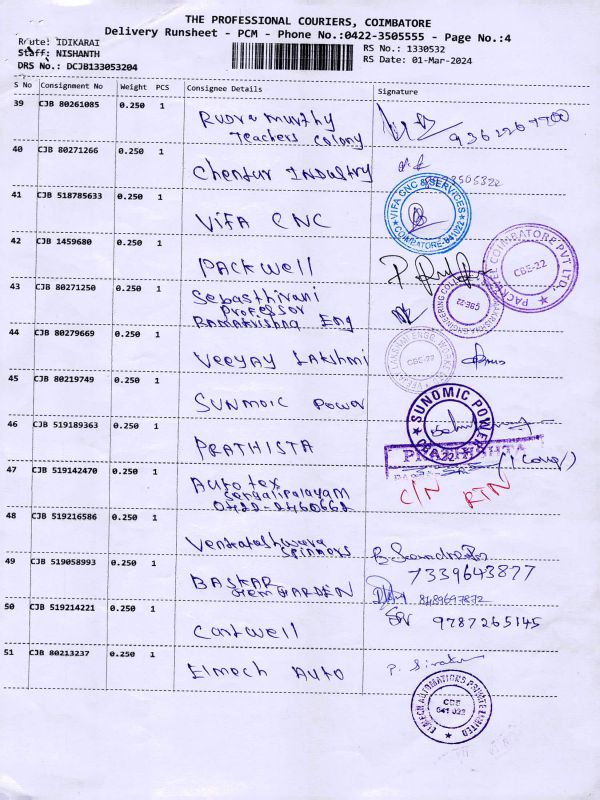 THE PROFESSIONAL COURIERS, COIMBATORE
Delivery Runsheet - PCM - Phone No.:0422-3505555 - Page No.:4
Route: IDIKARAI
RS No.: 1330532
Staff: NISHANTH
RS Date: 01-Mar-2024
DRS No.: DCJB133053204
S No Consignment No Weight PCS Consignee Details Signature
39 CJB 80261085 0.250 1 Rudra Murthy
Teachers Colony
40 CJB 80271266 0.250 1 Chentur INDUSTRY
41 CJB 518785633 0.250 1 ViFA CNC
VIFA CNC & SERVICES
COIMBATORE-641022
42 CJB 1459680 0.250 1 PACKWELL
PACKWELL COIMBATORE PVT LTD.
CBE-22
43 CJB 80271250 0.250 1 Sebasthirani
Professor
Ramakrishna Eng
CBE-22
44 CJB 80279669 0.250 1 VEEYAY LAKSHMI
CBE-22
45 CJB 80219749 0.250 1 SUNMOIC Power
SUNOMIC POWER
46 CJB 519189363 0.250 1 PRATHISTA
47 CJB 519142470 0.250 1 Autotex
C/N RTN
0422-2460662
48 CJB 519216586 0.250 1 Venkateshwara
Spinnors
49 CJB 519058993 0.250 1 BASKAR
7339643877
GEM GARDEN
8489697872
50 CJB 519214221 0.250 1 Cantwell
9787265145
51 CJB 80213237 0.250 1 Elmech Auto
ELMECH AUTOMATIONS PRIVATE LIMITED
CBE
641 022